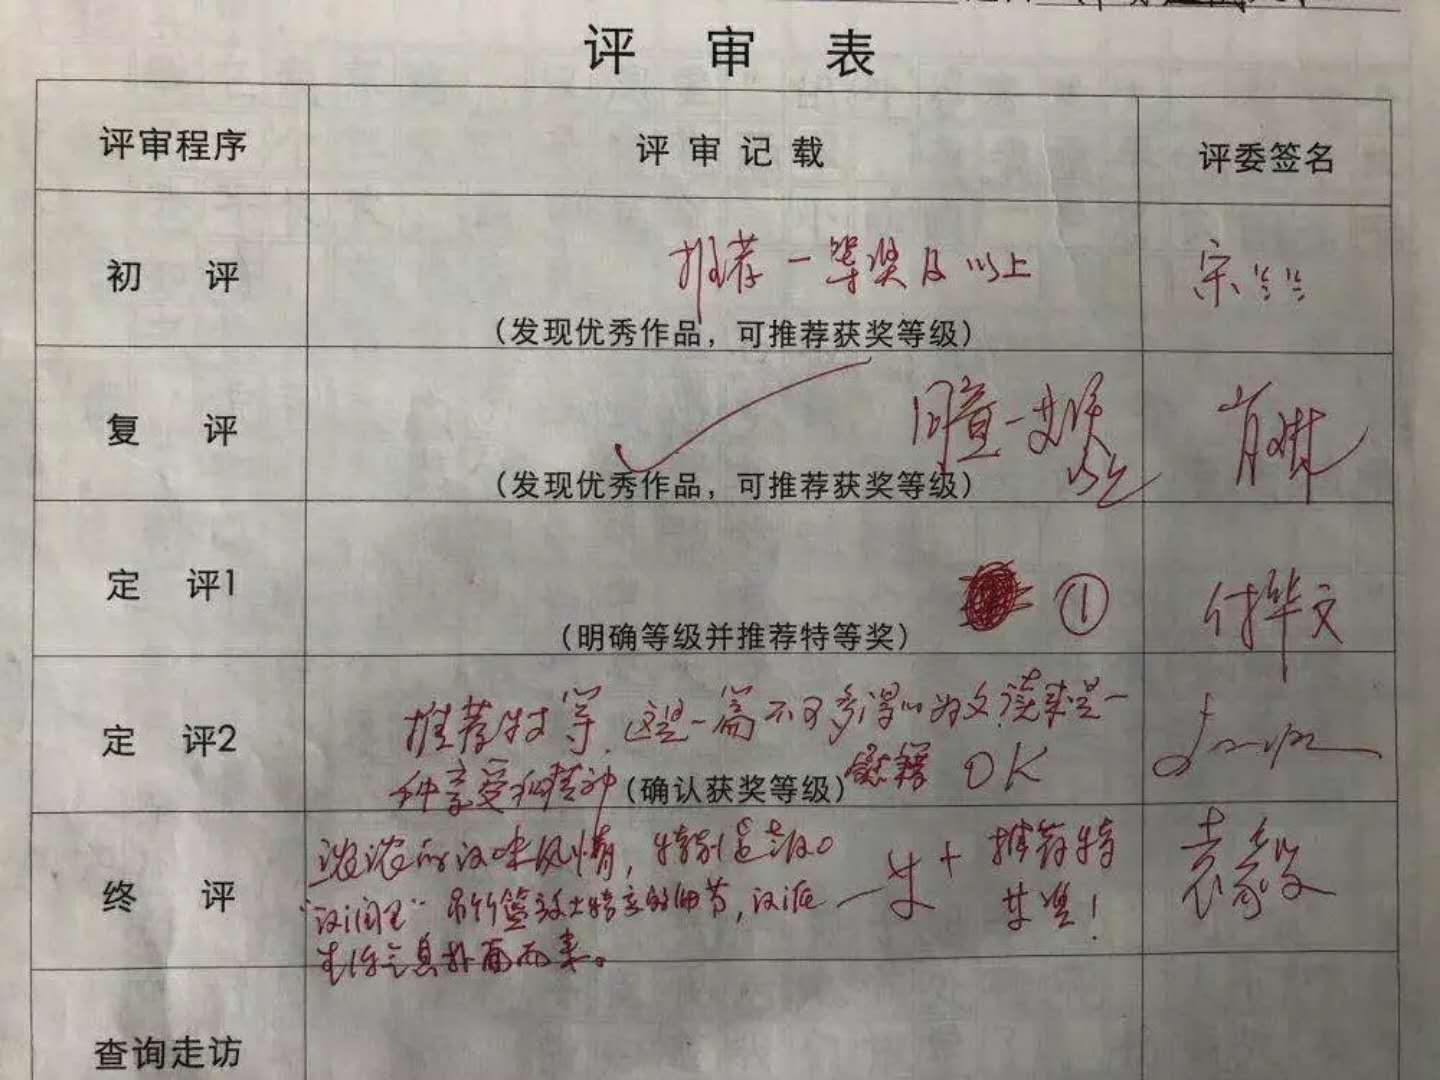 评 审 表
评审程序
评 审 记 载
评委签名
初 评
推荐一等奖及以上
(发现优秀作品，可推荐获奖等级)
宋
复 评
同意一等奖
以上
(发现优秀作品，可推荐获奖等级)
肖
定 评1
①
(明确等级并推荐特等奖)
付华文
定 评2
推荐特等.这是一篇不可多得的好文,读来是一
种享受和精神(确认获奖等级)慰籍 OK
终 评
浓浓的汉味风情，特别是汉口
吊竹篮 的细节，汉派
生活气息扑面而来。
一等+
推荐特
等奖！
袁毅
查询走访